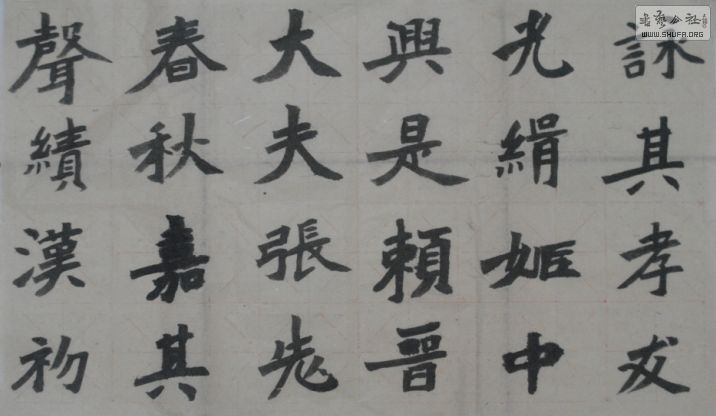 詠其孝友
光緝姬中
興是頼晉
大夫張老
春秋嘉其
聲績漢初
書藝公社
WWW.SHUFA.ORG